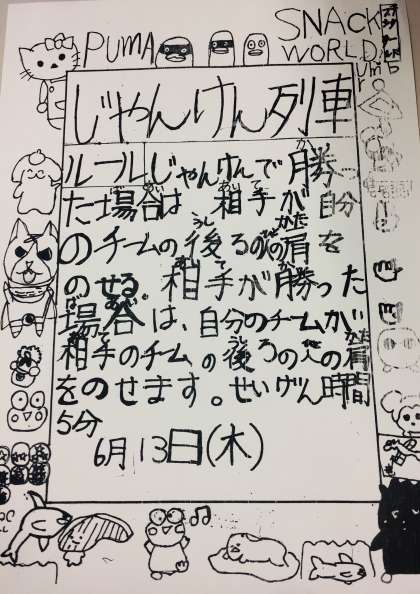 PUMA
SNACK
WORLD
じゃんけん列車
ルール じゃんけんで勝っ
た場合は 相手が自分
のチームの後ろの人の肩を
のせる。相手が勝った
場合は、自分のチームが
相手のチームの後ろの人の肩
をのせます。せいげん時間
5分
6月13日(木)